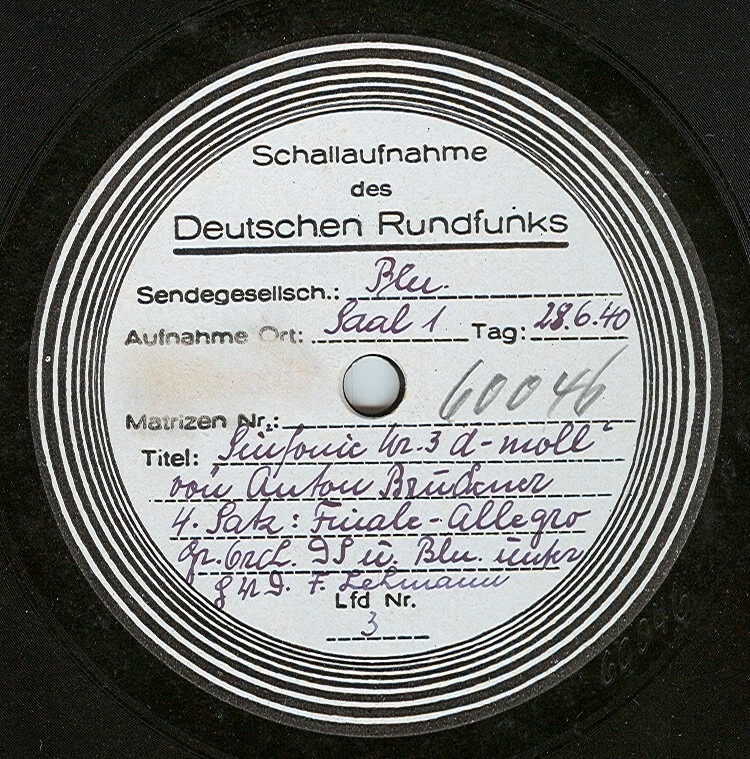 Schallaufnahme
des
Deutschen Rundfunks
Sendegesellsch.: Bln.
Aufnahme Ort: Saal 1 Tag: 28.6.40
60046
Matrizen Nr.:
Titel: "Sinfonie Nr. 3 d-moll"
von Anton Bruckner
4. Satz: Finale - Allegro
Gr. Orch. DS u. Bln. unter
F. Lehmann
Lfd Nr.
3
60046